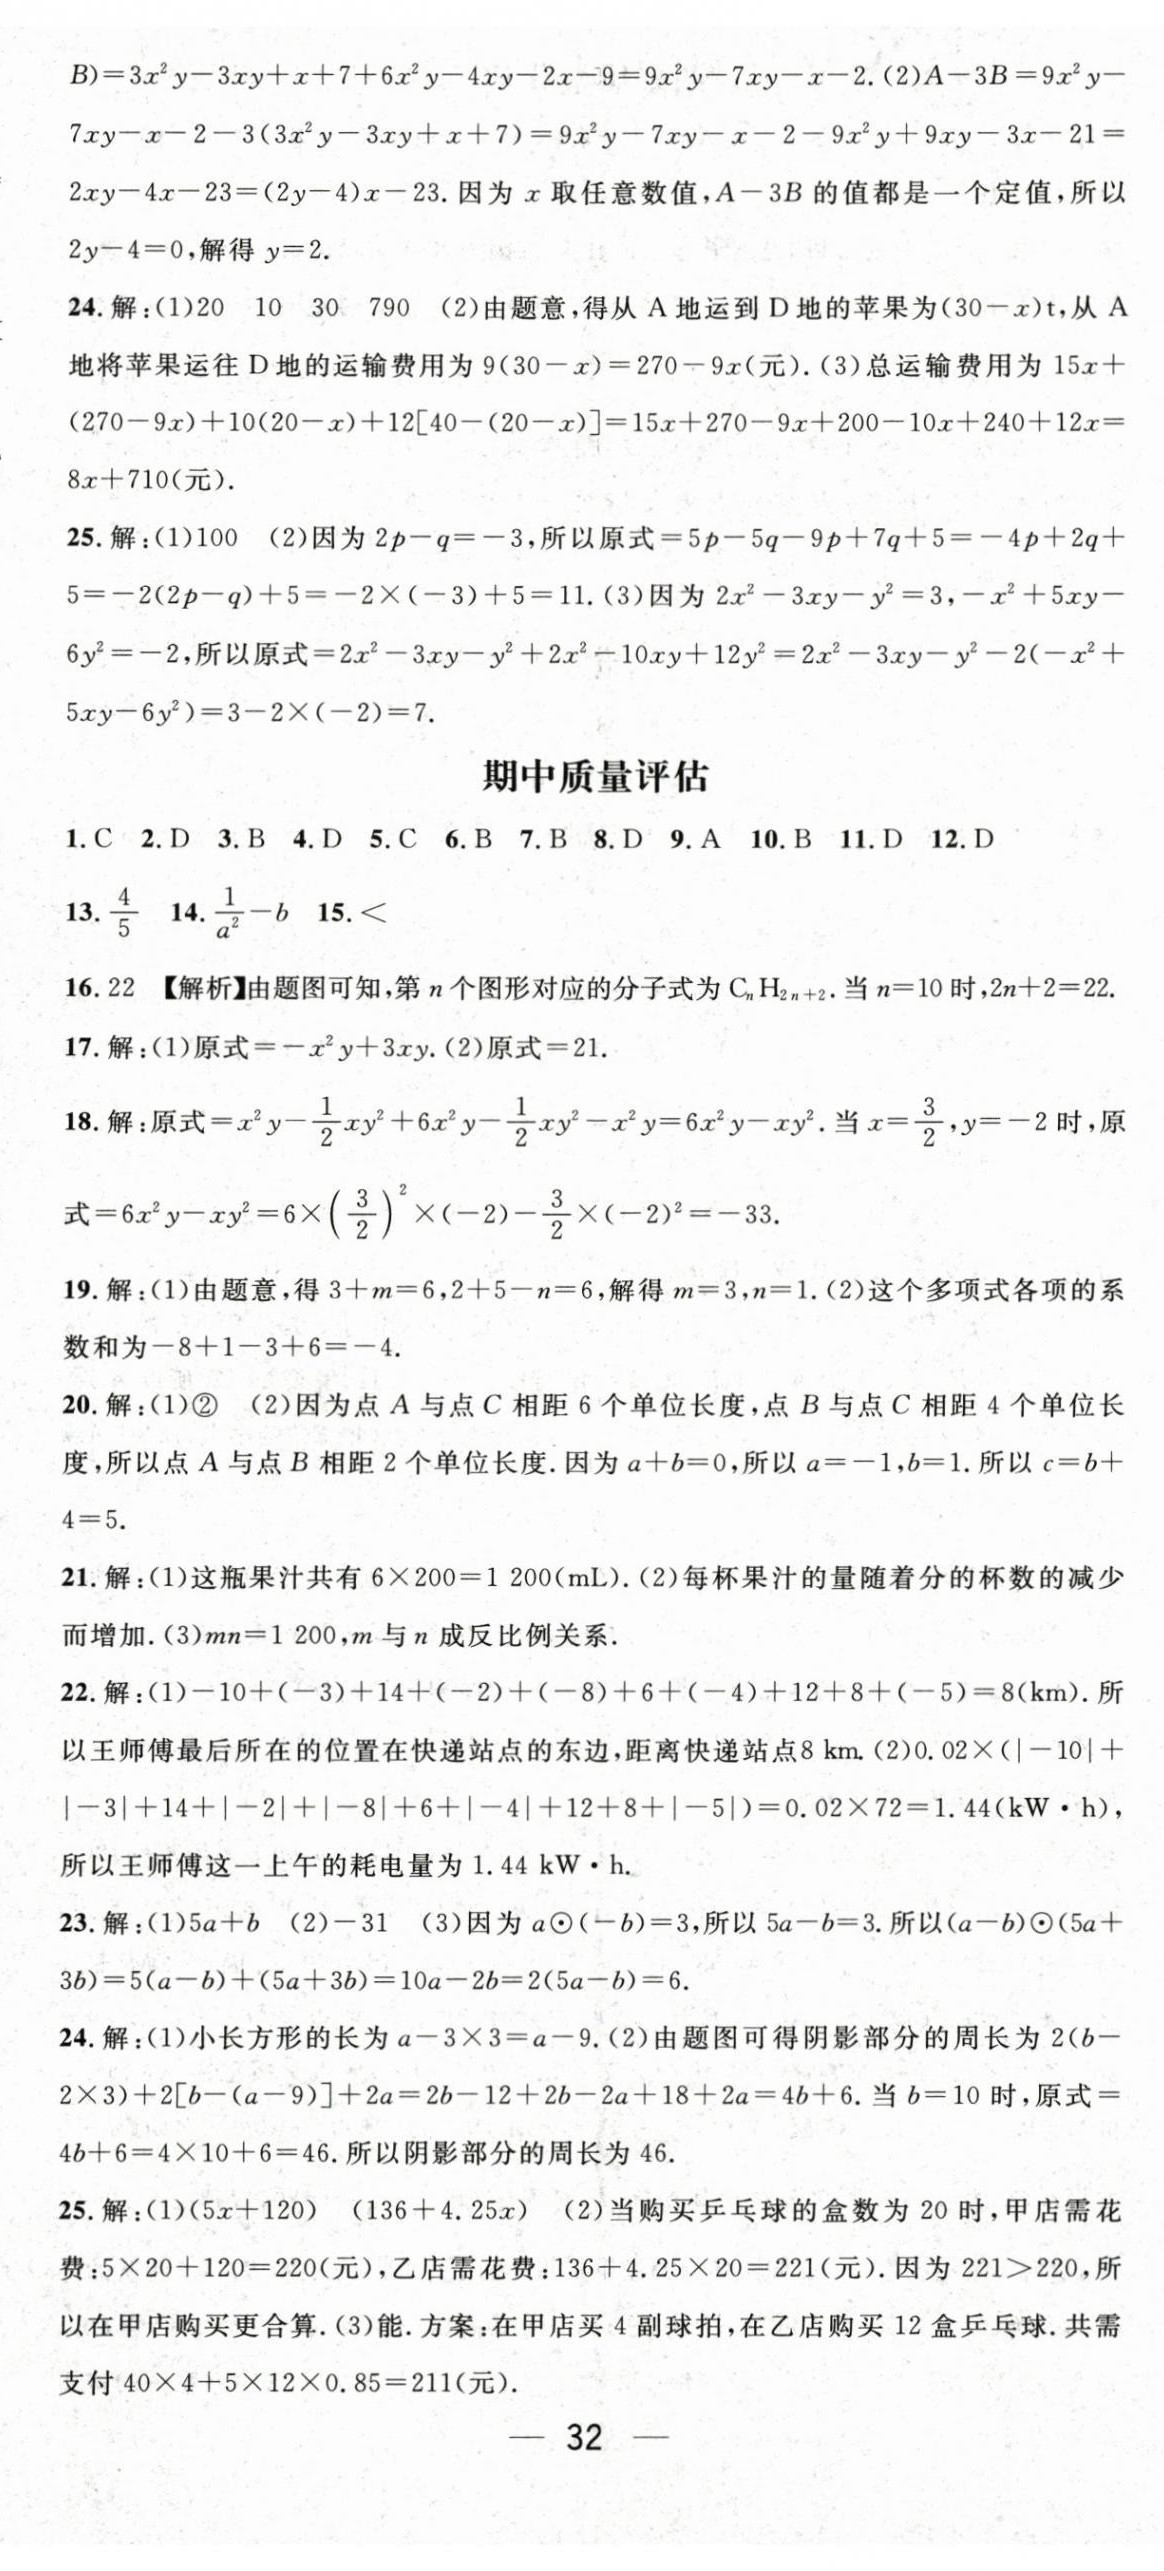 B)=3x²y-3xy+x+7+6x²y-4xy-2x-9=9x²y-7xy-x-2.(2)A-3B=9x²y-
7xy-x-2-3(3x²y-3xy+x+7)=9x²y-7xy-x-2-9x²y+9xy-3x-21=
2xy-4x-23=(2y-4)x-23.因为 x 取任意数值,A-3B 的值都是一个定值,所以
2y-4=0,解得 y=2.
24.解:(1)20 10 30 790 (2)由题意,得从 A 地运到 D 地的苹果为(30-x)t,从 A
地将苹果运往 D 地的运输费用为 9(30-x)=270-9x(元).(3)总运输费用为 15x+
(270-9x)+10(20-x)+12[40-(20-x)]=15x+270-9x+200-10x+240+12x=
8x+710(元).
25.解:(1)100 (2)因为 2p-q=-3,所以原式=5p-5q-9p+7q+5=-4p+2q+
5=-2(2p-q)+5=-2×(-3)+5=11.(3)因为 2x²-3xy-y²=3,-x²+5xy-
6y²=-2,所以原式=2x²-3xy-y²+2x²-10xy+12y²=2x²-3xy-y²-2(-x²+
5xy-6y²)=3-2×(-2)=7.
期中质量评估
1.C 2.D 3.B 4.D 5.C 6.B 7.B 8.D 9.A 10.B 11.D 12.D
13.4/5 14.1/a²-b 15.<
16.22 【解析】由题图可知,第 n 个图形对应的分子式为 CₙH₂ₙ₊₂.当 n=10 时,2n+2=22.
17.解:(1)原式=-x²y+3xy.(2)原式=21.
18.解:原式=x²y-1/2xy²+6x²y-1/2xy²-x²y=6x²y-xy².当 x=3/2,y=-2 时,原
式=6x²y-xy²=6×(3/2)²×(-2)-3/2×(-2)²=-33.
19.解:(1)由题意,得 3+m=6,2+5-n=6,解得 m=3,n=1.(2)这个多项式各项的系
数和为-8+1-3+6=-4.
20.解:(1)② (2)因为点 A 与点 C 相距 6 个单位长度,点 B 与点 C 相距 4 个单位长
度,所以点 A 与点 B 相距 2 个单位长度.因为 a+b=0,所以 a=-1,b=1.所以 c=b+
4=5.
21.解:(1)这瓶果汁共有 6×200=1 200(mL).(2)每杯果汁的量随着分的杯数的减少
而增加.(3)mn=1 200,m 与 n 成反比例关系.
22.解:(1)-10+(-3)+14+(-2)+(-8)+6+(-4)+12+8+(-5)=8(km).所
以王师傅最后所在的位置在快递站点的东边,距离快递站点8 km.(2)0.02×(|-10|+
|-3|+14+|-2|+|-8|+6+|-4|+12+8+|-5|)=0.02×72=1.44(kW·h),
所以王师傅这一上午的耗电量为 1.44 kW·h.
23.解:(1)5a+b (2)-31 (3)因为 a⊙(-b)=3,所以 5a-b=3.所以(a-b)⊙(5a+
3b)=5(a-b)+(5a+3b)=10a-2b=2(5a-b)=6.
24.解:(1)小长方形的长为 a-3×3=a-9.(2)由题图可得阴影部分的周长为 2(b-
2×3)+2[b-(a-9)]+2a=2b-12+2b-2a+18+2a=4b+6.当 b=10 时,原式=
4b+6=4×10+6=46.所以阴影部分的周长为 46.
25.解:(1)(5x+120) (136+4.25x) (2)当购买乒乓球的盒数为 20 时,甲店需花
费:5×20+120=220(元),乙店需花费:136+4.25×20=221(元).因为 221>220,所
以在甲店购买更合算.(3)能.方案:在甲店买 4 副球拍,在乙店购买 12 盒乒乓球.共需
支付 40×4+5×12×0.85=211(元).
— 32 —